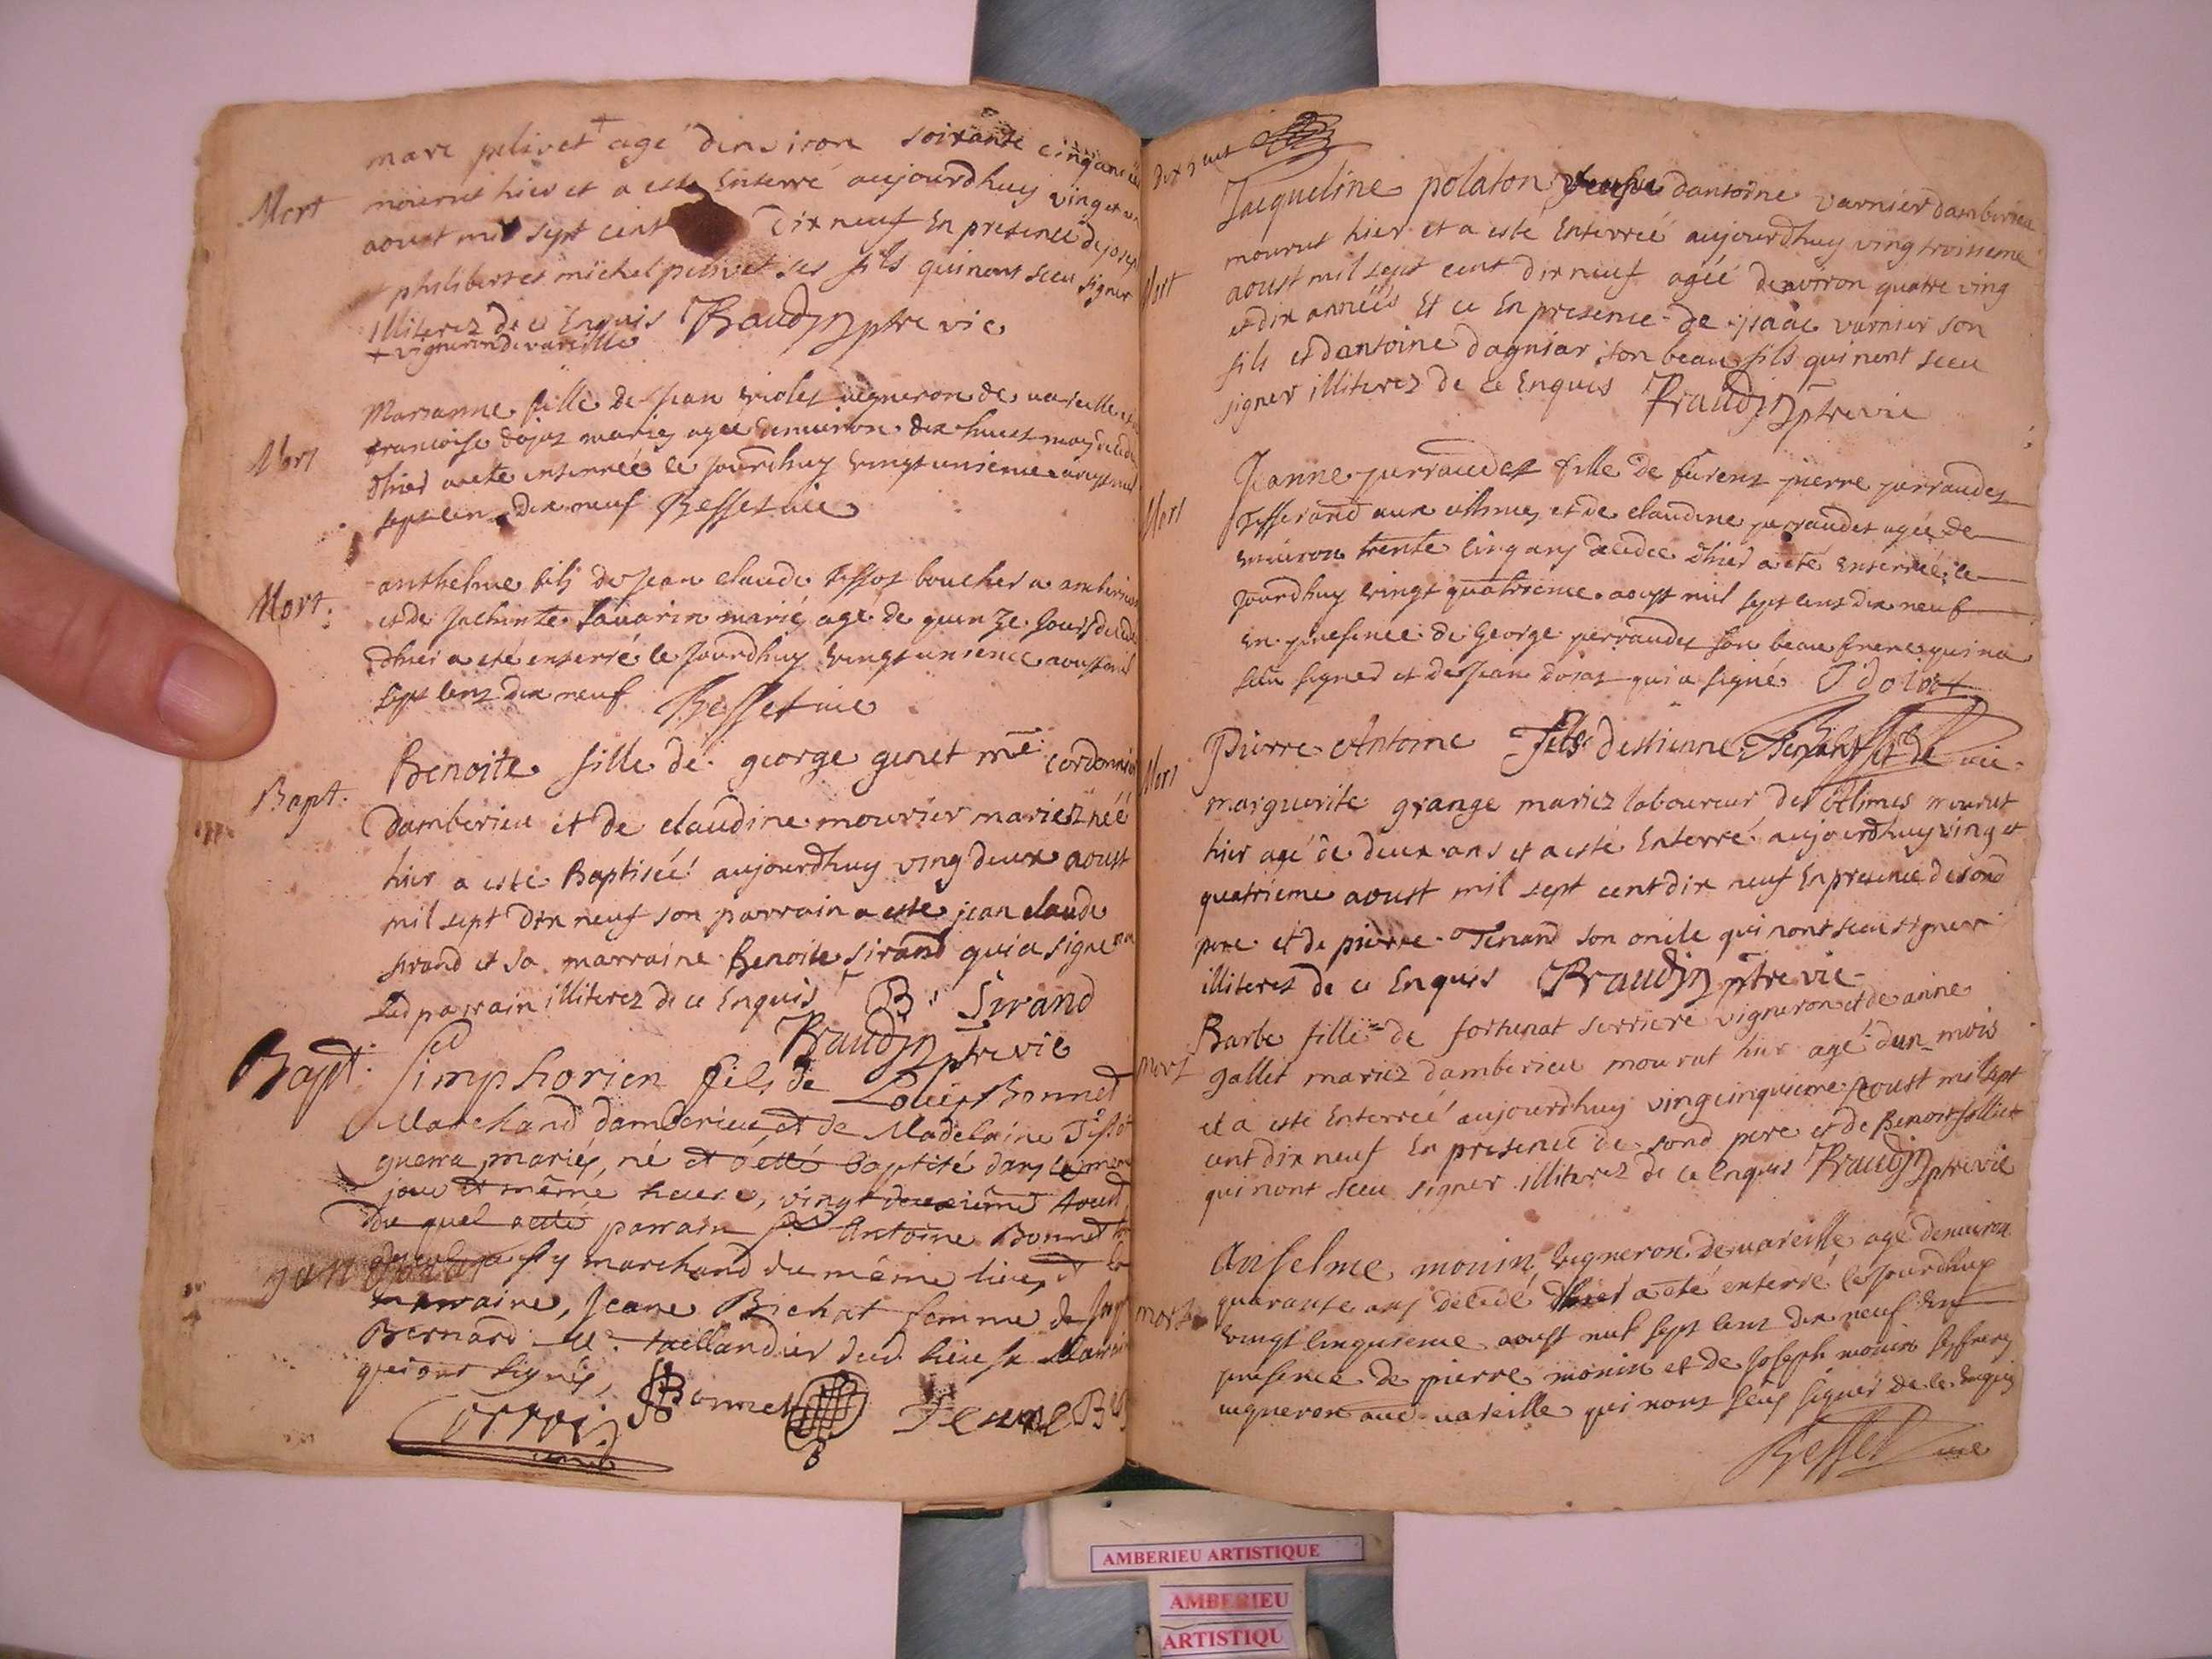 marc pelivet + agé denviron soixante cinq ans
Mort
mourut hier et a esté Enterré aujourdhuy vingt et un
aoust mil sept cent dix neuf En presence de joseph
philibert et michel pelivet ses fils qui nont sceu signer
illiterez de ce Enquis Baudin ptre vic
+ vigneron de vareille
Marianne fille de Jean violet vigneron de vareille et de
Mort
francoise dojat mariez agee denviron dix huit moys decedee
dhier a ete enterrée le jourdhuy vingt unieme aoust mil
sept cent dix neuf Besset vic
anthelme fils de Jean claude tissot boucher a amberieu
Mort.
et de Jachinte savarin marié agé de quinze jours decede
dhier a eté enterré le jourdhuy vingt unieme aoust mil
sept cens dix neuf Besset vic
Benoite fille de george genet me cordonnier
Bapt.
damberieu et de claudine mourier mariez née
hier a esté Baptisée aujourdhuy ving deux aoust
mil sept dix neuf son parrain a esté jean claude
sirand et sa marraine Benoite sirand qui a signé non
led parrain illiterez de ce Enquis B. Sirand
Baudin ptre vic
Bapt. Simphorien fils de Louis Bonnet
Marchand damberieu et de Madelaine Tissot
guerra mariés, né et a etté baptisé dans le meme
jour et même heure, vingt deuxieme Aoust
du quel a etté parrain Sr. Antoine Bonnet
marchand du même lieu, et la
marraine, Jeane Bichat femme de
Bernard Me. taillandier dud. lieu sa
qui ont signés,
Bonnet Jeane
dix neuf
Jacqueline polaton veufve dantoine varnier damberieu
mourut hier et a esté Enterreé aujourdhuy ving troisieme
Mort
aoust mil sept cent dix neuf agéé denviron quatre ving
et dix années Et ce En presence de ysaac varnier son
fils et dantoine dagniar son beau fils qui nont sceu
signer illiterez de ce Enquis Baudin ptre vic
Jeanne perraudet fille de furent pierre perraudet
Mort
tisserand aux allimes et de claudine perraudet agée de
environ trente cinq ans decedee dhier a eté enterrée le
jourdhuy vingt quatrieme aoust mil sept cens dix neuf
en presence de George perraudet son beau frere qui na
sceu signer et de Jean dojat qui a signé J dojat
Besset vic
Mort
Pierre Antoine Fils destienne Tenand et de
marguerite grange mariez laboureur des allimes mourut
hier agé de deux ans et a esté Enterré aujourdhuy ving et
quatrieme aoust mil sept cent dix neuf En presence de sond
pere et de pierre Tenand son oncle qui nont sceu signer
illiterez de ce Enquis Baudin ptre vic
Barbe fille de fortunat serriere vigneron et de anne
mort
gallet mariez damberieu mourut hier agé dun mois
et a esté Enterreé aujourdhuy ving cinquieme Aoust mil sept
cent dix neuf En presence de sond pere et de Benoit folliet
qui nont sceu signer illiterez de ce Enquis Baudin ptre vic
Anselme monin vigneron de vareille agé denviron
quarante ans decedé dhier a eté enterré le jourdhuy
mort
vingt cinquieme aoust mil sept cens dix neuf en
presence de pierre monin et de Joseph monin ses freres
vigneron aud vareille qui nont sceus signer de ce enquis
Besset vic
AMBERIEU ARTISTIQUE
AMBERIEU
ARTISTIQU